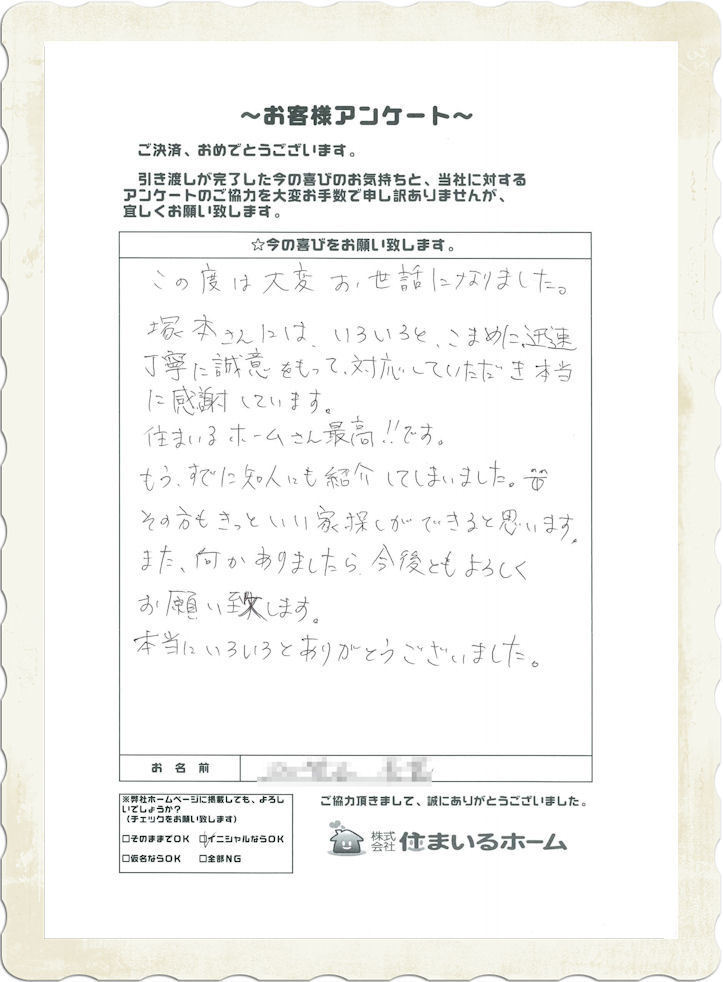 ～お客様アンケート～
ご決済、おめでとうございます。
引き渡しが完了した今の喜びのお気持ちと、当社に対する
アンケートのご協力を大変お手数で申し訳ありませんが、
宜しくお願い致します。
☆今の喜びをお願い致します。
この度は大変お世話になりました。
塚本さんには、いろいろと、こまめに、迅速
丁寧に誠意をもって、対応していただき本当
に感謝しています。
住まいるホームさん最高!!です。
もう、すでに知人にも紹介してしまいました。
その方もきっといい家探しができると思います。
また、何かありましたら、今後ともよろしく
お願い致します。
本当にいろいろとありがとうございました。
お名前
※弊社ホームページに掲載しても、よろし
いでしょうか？
（チェックをお願い致します）
□そのままでOK □イニシャルならOK
□仮名ならOK □全部NG
ご協力頂きまして、誠にありがとうございました。
株式会社 住まいるホーム